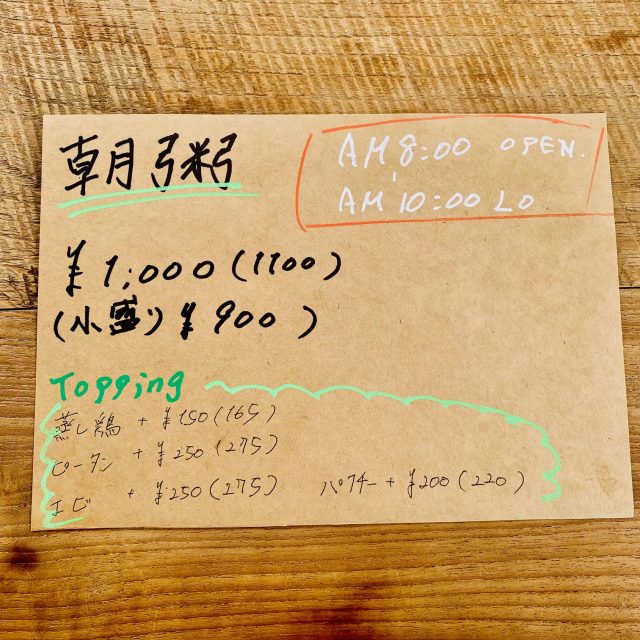 朝粥
AM 8:00 OPEN.
AM 10:00 LO
¥1,000(1100)
(小盛り ¥900)
Topping
蒸し鶏 + ¥150(165)
ピータン + ¥250(275)
エビ + ¥250(275) パクチー + ¥200(220)